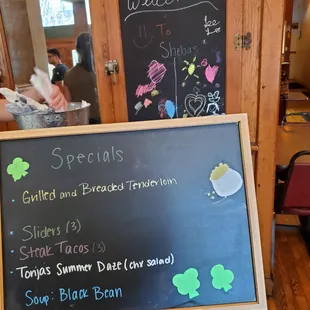 Welcome
To
Shebas
Specials
• Grilled and Breaded Tenderloin
• Sliders (3)
• Steak Tacos (3)
• Tonjas Summer Daze (chx salad)
Soup: Black Bean